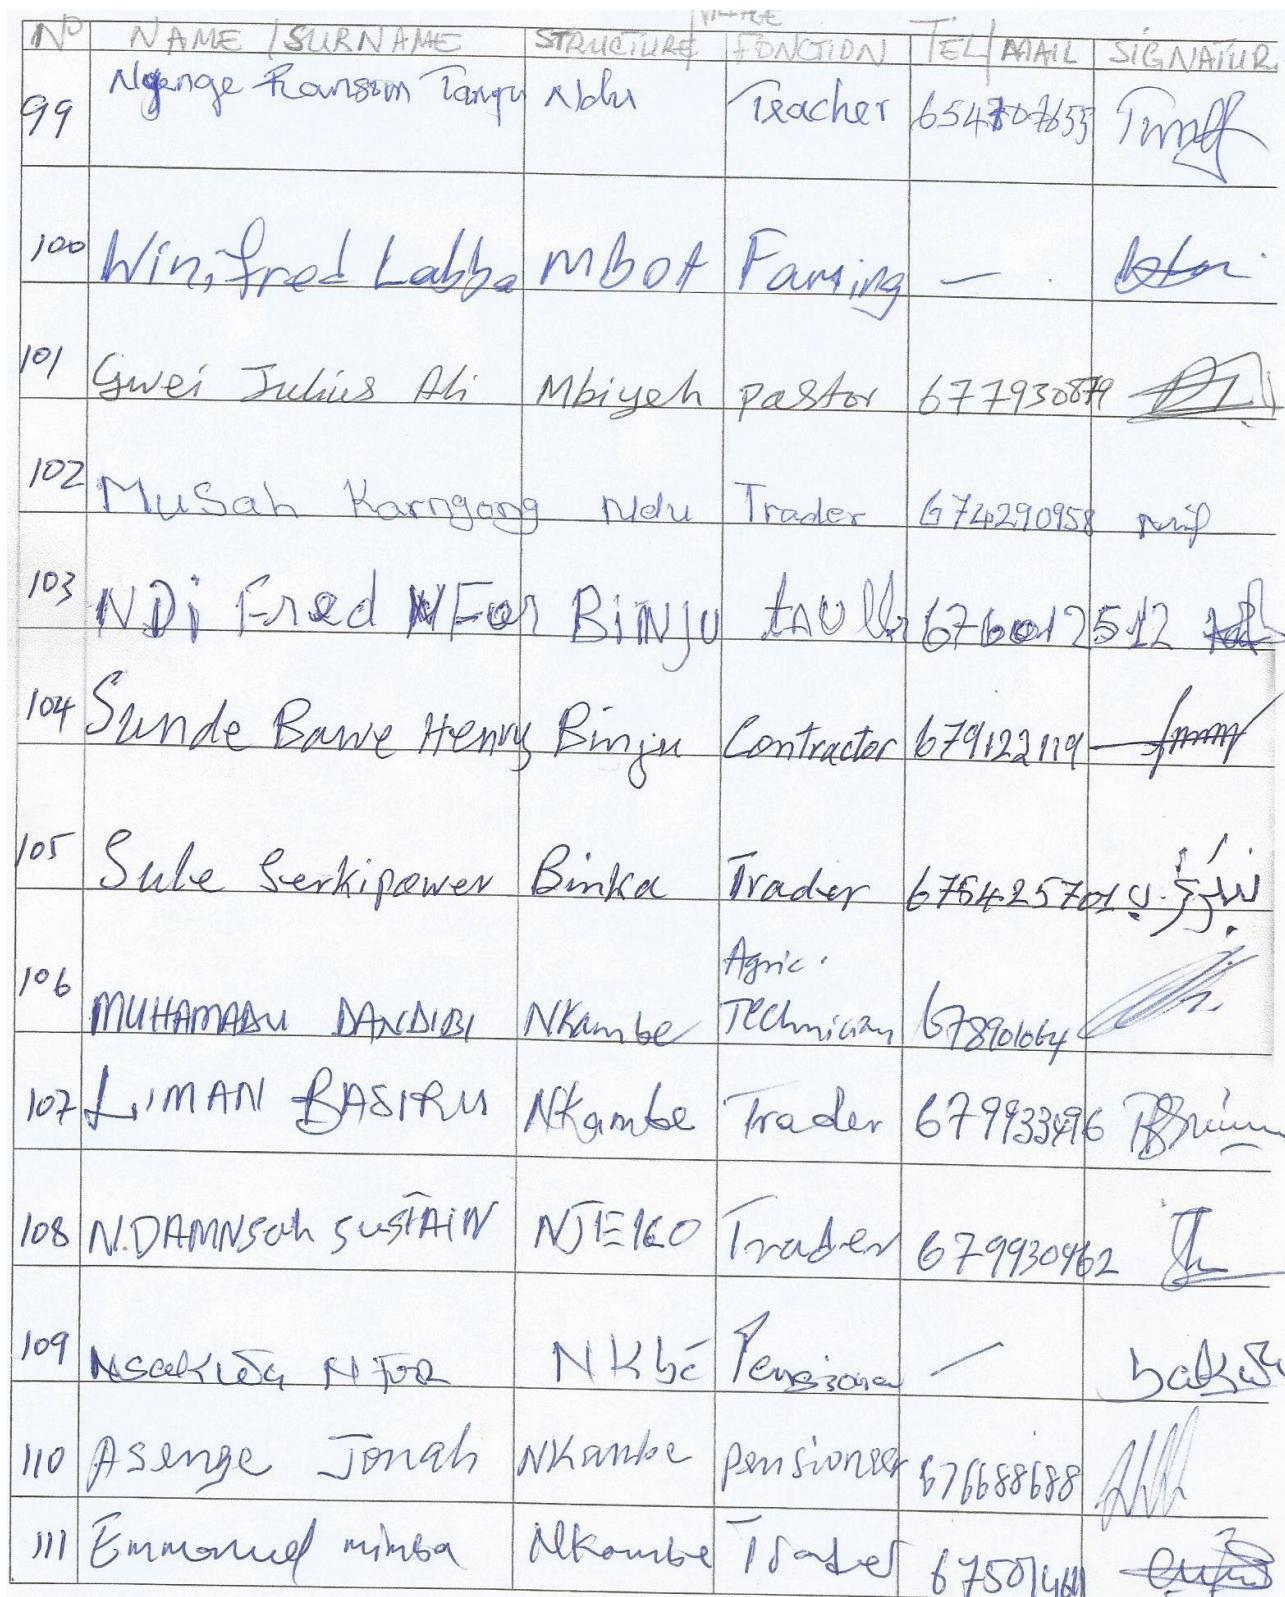 VILLAGE
N° NAME /SURNAME STRUCTURE FONCTION TEL/MAIL SIGNATUR
99 Ngenge Ransom Tangu Ndu Teacher
100 Winifred Labba Mbot Faming —
101 Gwei Julius Ali Mbiyeh pastor 677930879
102 Musah Karngong Ndu Trader 674290958
103 NDi Fred NFor BINJU
104 Sunde Bawe Henry Binju Contractor 679122119
105 Sule Serkipawer Binka Trader 675425701
Agric.
106 MUHAMADU DANDIBI Nkambe Technician 678901064
107 LIMAN BASIRU NKambe Trader 679933496
108 N.DAMNSah SUSTAIN NJEKO Trader 679930462
109 NFOR NKbé —
110 Asenge Jonah NKambe pensioner 676688688
111 Emmanuel mimba Nkambe Trader